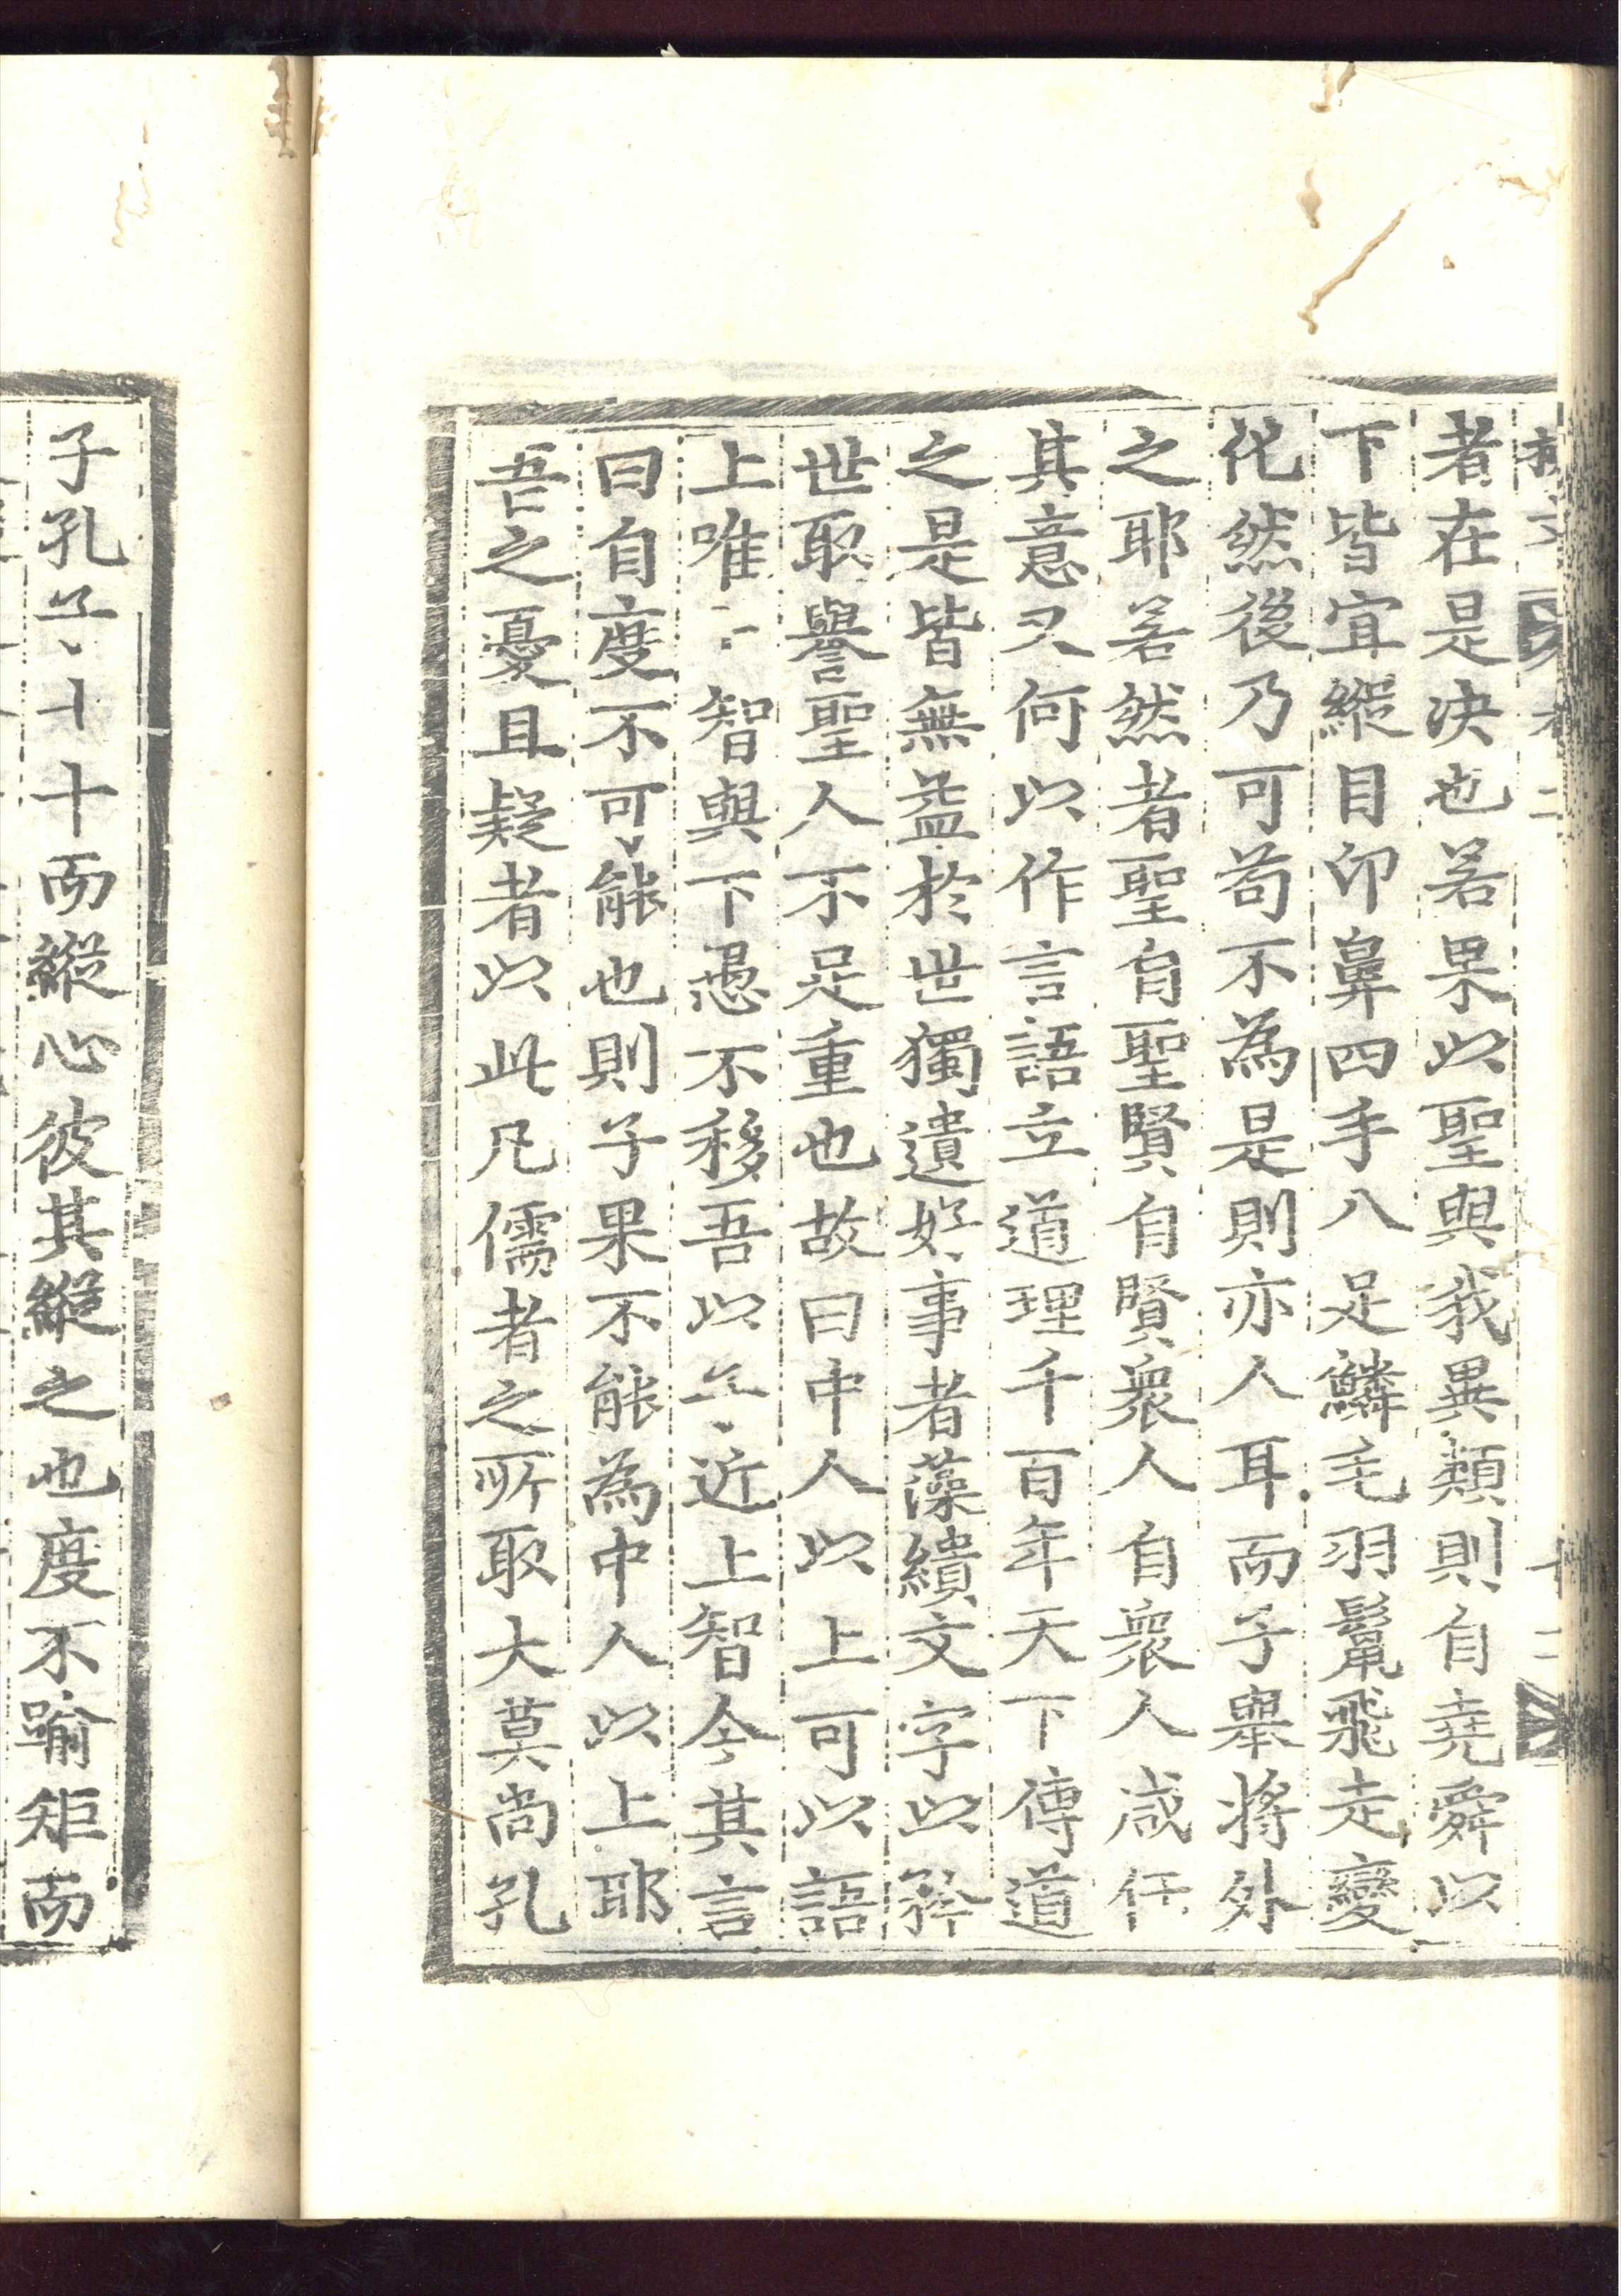 者在是决也若果以聖與我異類則自堯舜以
下皆宜縱目卬鼻四手八足鱗毛羽鬣飛走變
化然後乃可苟不為是則亦人耳而子舉將外
之耶若然者聖自聖賢自賢衆人自衆人咸任
其意又何以作言語立道理千百年天下傳道
之是皆無益於世獨遺好事者藻繢文字以矜
世取譽聖人不足重也故曰中人以上可以語
上唯上智與下愚不移吾以為近上智今其言
曰自度不可能也則子果不能為中人以上耶
吾之憂且疑者以此凡儒者之所取大莫尚孔
子孔子七十而縱心彼其縱之也度不踰矩而